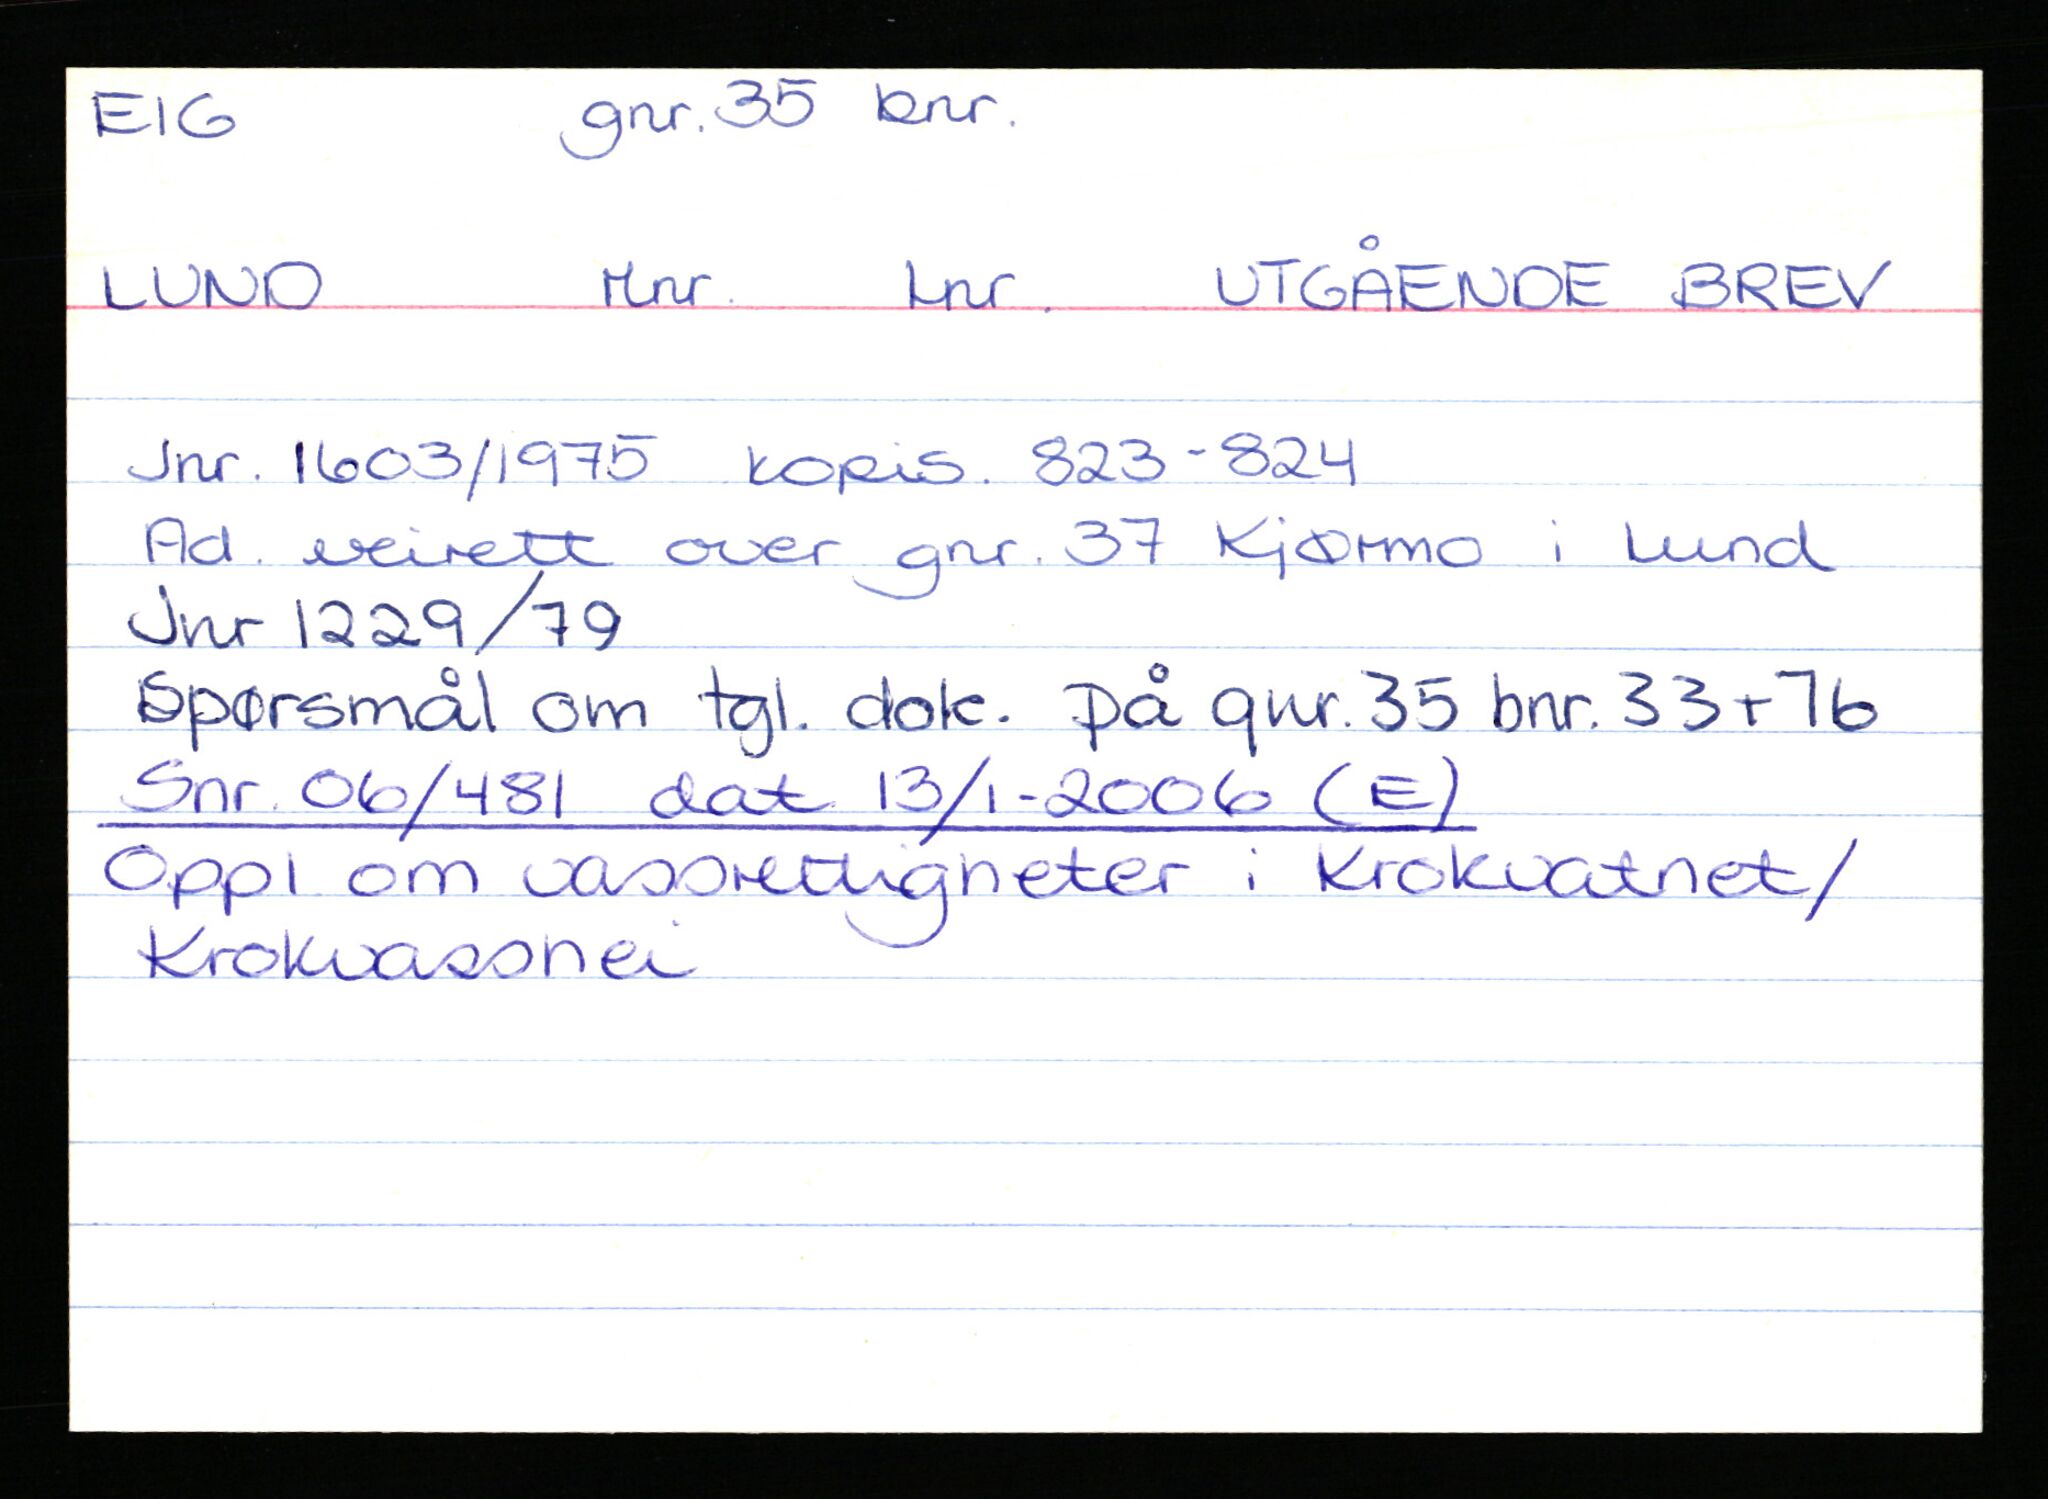 EIG gnr. 35 bnr.
LUND Mnr. Lnr. UTGÅENDE BREV
Jnr. 1603/1975 kopis. 823-824
Ad. veirett over gnr. 37 Kjørmo i Lund
Jnr 1229/79
Spørsmål om tgl. dok. på gnr. 35 bnr. 33+76
Snr. 06/481 dat 13/1-2006 (E)
Oppl om vassrettigheter i Krokvatnet/
Krokvassnei